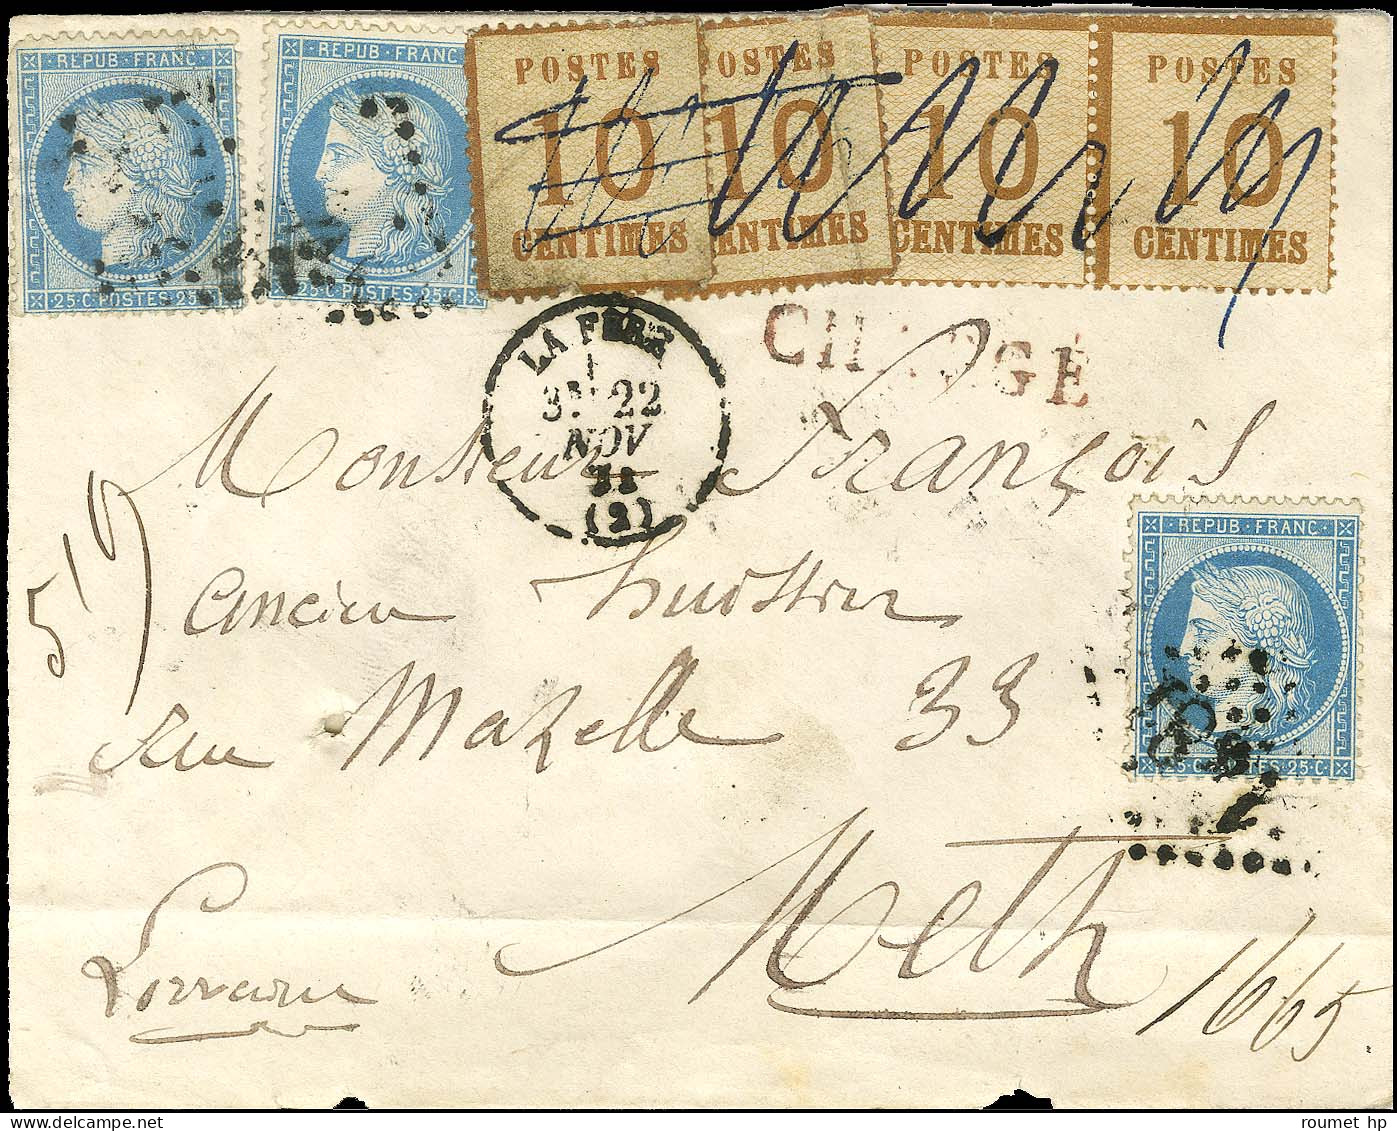 REPUB·FRANC
25·C·POSTES·25·C
REPUB·FRANC
25·C·POSTES·25·C
POSTES
10
CENTIMES
POSTES
10
CENTIMES
POSTES
10
CENTIMES
POSTES
10
CENTIMES
CHARGÉ
LA FÈRE
3E 22
NOV
71
(2)
Monsieur François
ancien huissier
rue Mazelle 33
Metz
Lorraine
1665
REPUB·FRANC
25·C·POSTES·25·C
roumet hp